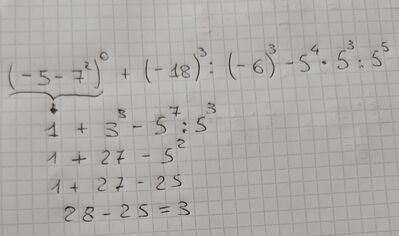 (-5-7²)⁰ + (-18)³ : (-6)³ - 5⁴ · 5³ : 5⁵
1 + 3³ - 5⁷ : 5³
1 + 27 - 5²
1 + 27 - 25
28 - 25 = 3